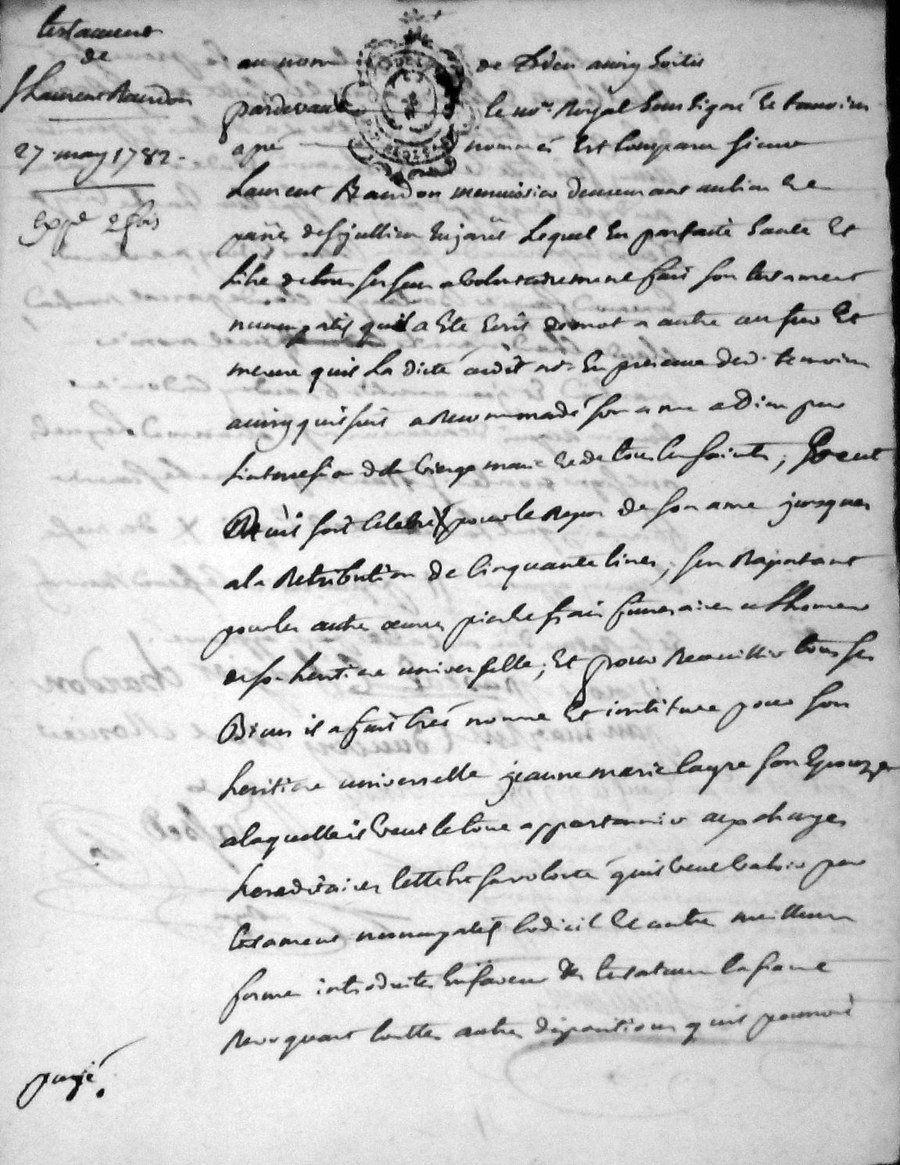 testament
de
Sr Laurent Baudon
27 may 1782.
expé 2 fois
au nom de Dieu ainsy soitil
pardevant le nore Royal soussigné et temoins
apré nommés est comparu sieur
Laurent Baudon menuisier demeurant au lieu et
paroisse de St jullien en jarès lequel en parfaite santé et
libre de tous ses sens a volontairement fait son testament
nuncupatif quil a été ecrit de mot a autre au fur et
mesure quil la dicté audit no. en presence desd. temoins
ainsy quil suit a recommandé son ame a Dieu par
lintercession de la vierge marie et de tous les saints, Il veut
quil soit celebré pour le repos de son ame jusques
a la Retribution de cinquante livres, sen Raportant
pour les autre œuvres pie et frais funeraires a lhonneur
de son heritiere universelle; Et pour Recueillir tous ses
Biens il a fait créé nommé et institué pour son
heritiere universelle jeanne marie son Epouze
a laquelle il veut le tout appartenir aux charges
hereditaires cette est sa volonté quil veut valoir par
testament nuncupatif codicil et autre meilleure
formes introduites en faveur des testateurs en france
Revoquant touttes autre dispositions quil pourroit
purgé.